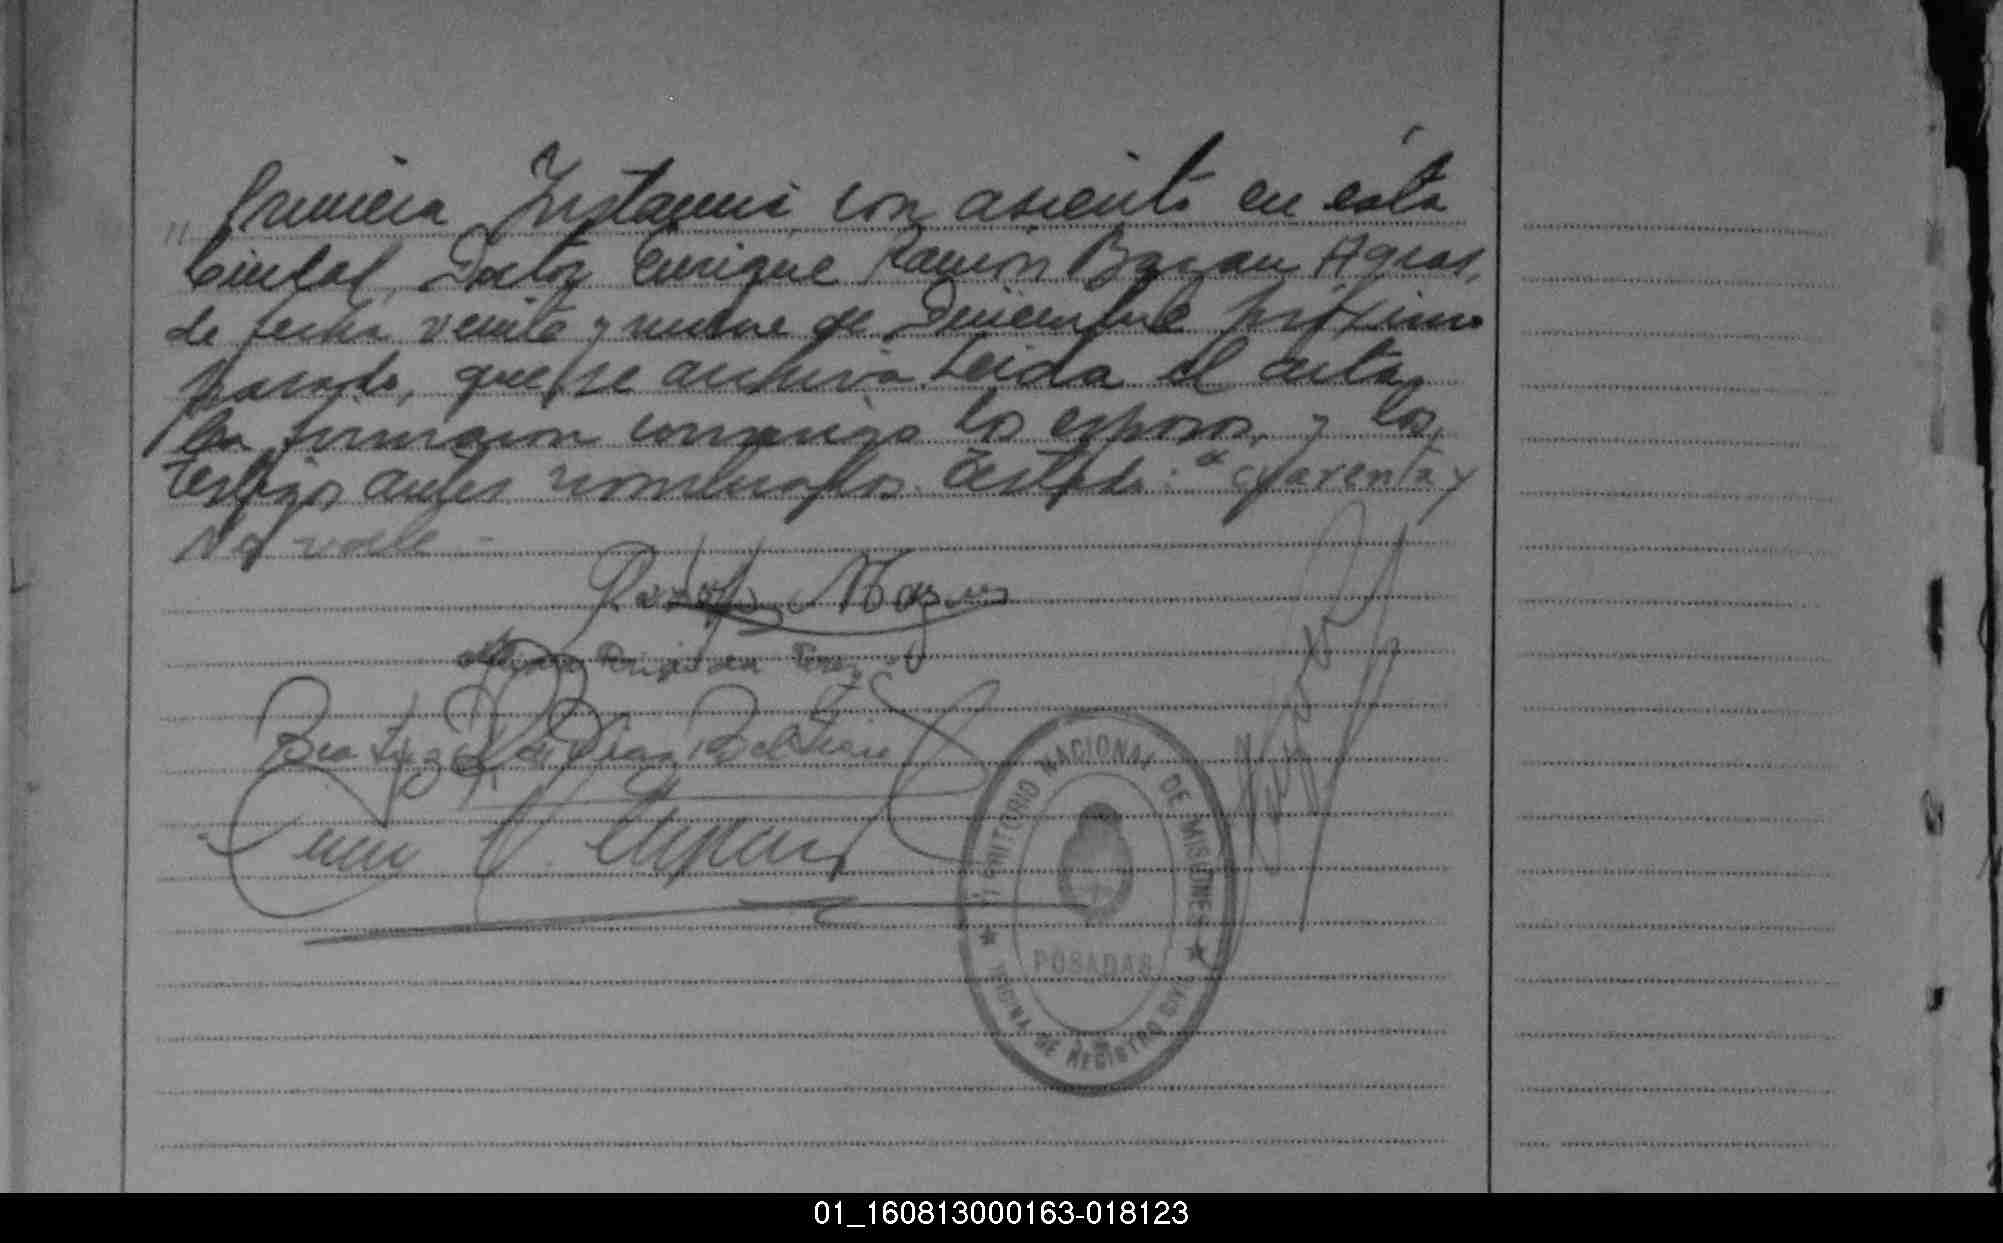 Primera Instancia con asiento en ésta
Ciudad, Doctor Enrique Ramón Bazan Agras,
de fecha veinte y nueve de Diciembre próximo
pasado, que se archiva. Leida el acta,
la firmaron conmigo los esposos, y los
testigos antes nombrados. Testado: "cuarenta y
No vale -
Rodolfo
Beatriz
TERRITORIO NACIONAL DE MISIONES
POSADAS
OFICINA DE REGISTRO CIVIL
01_160813000163-018123